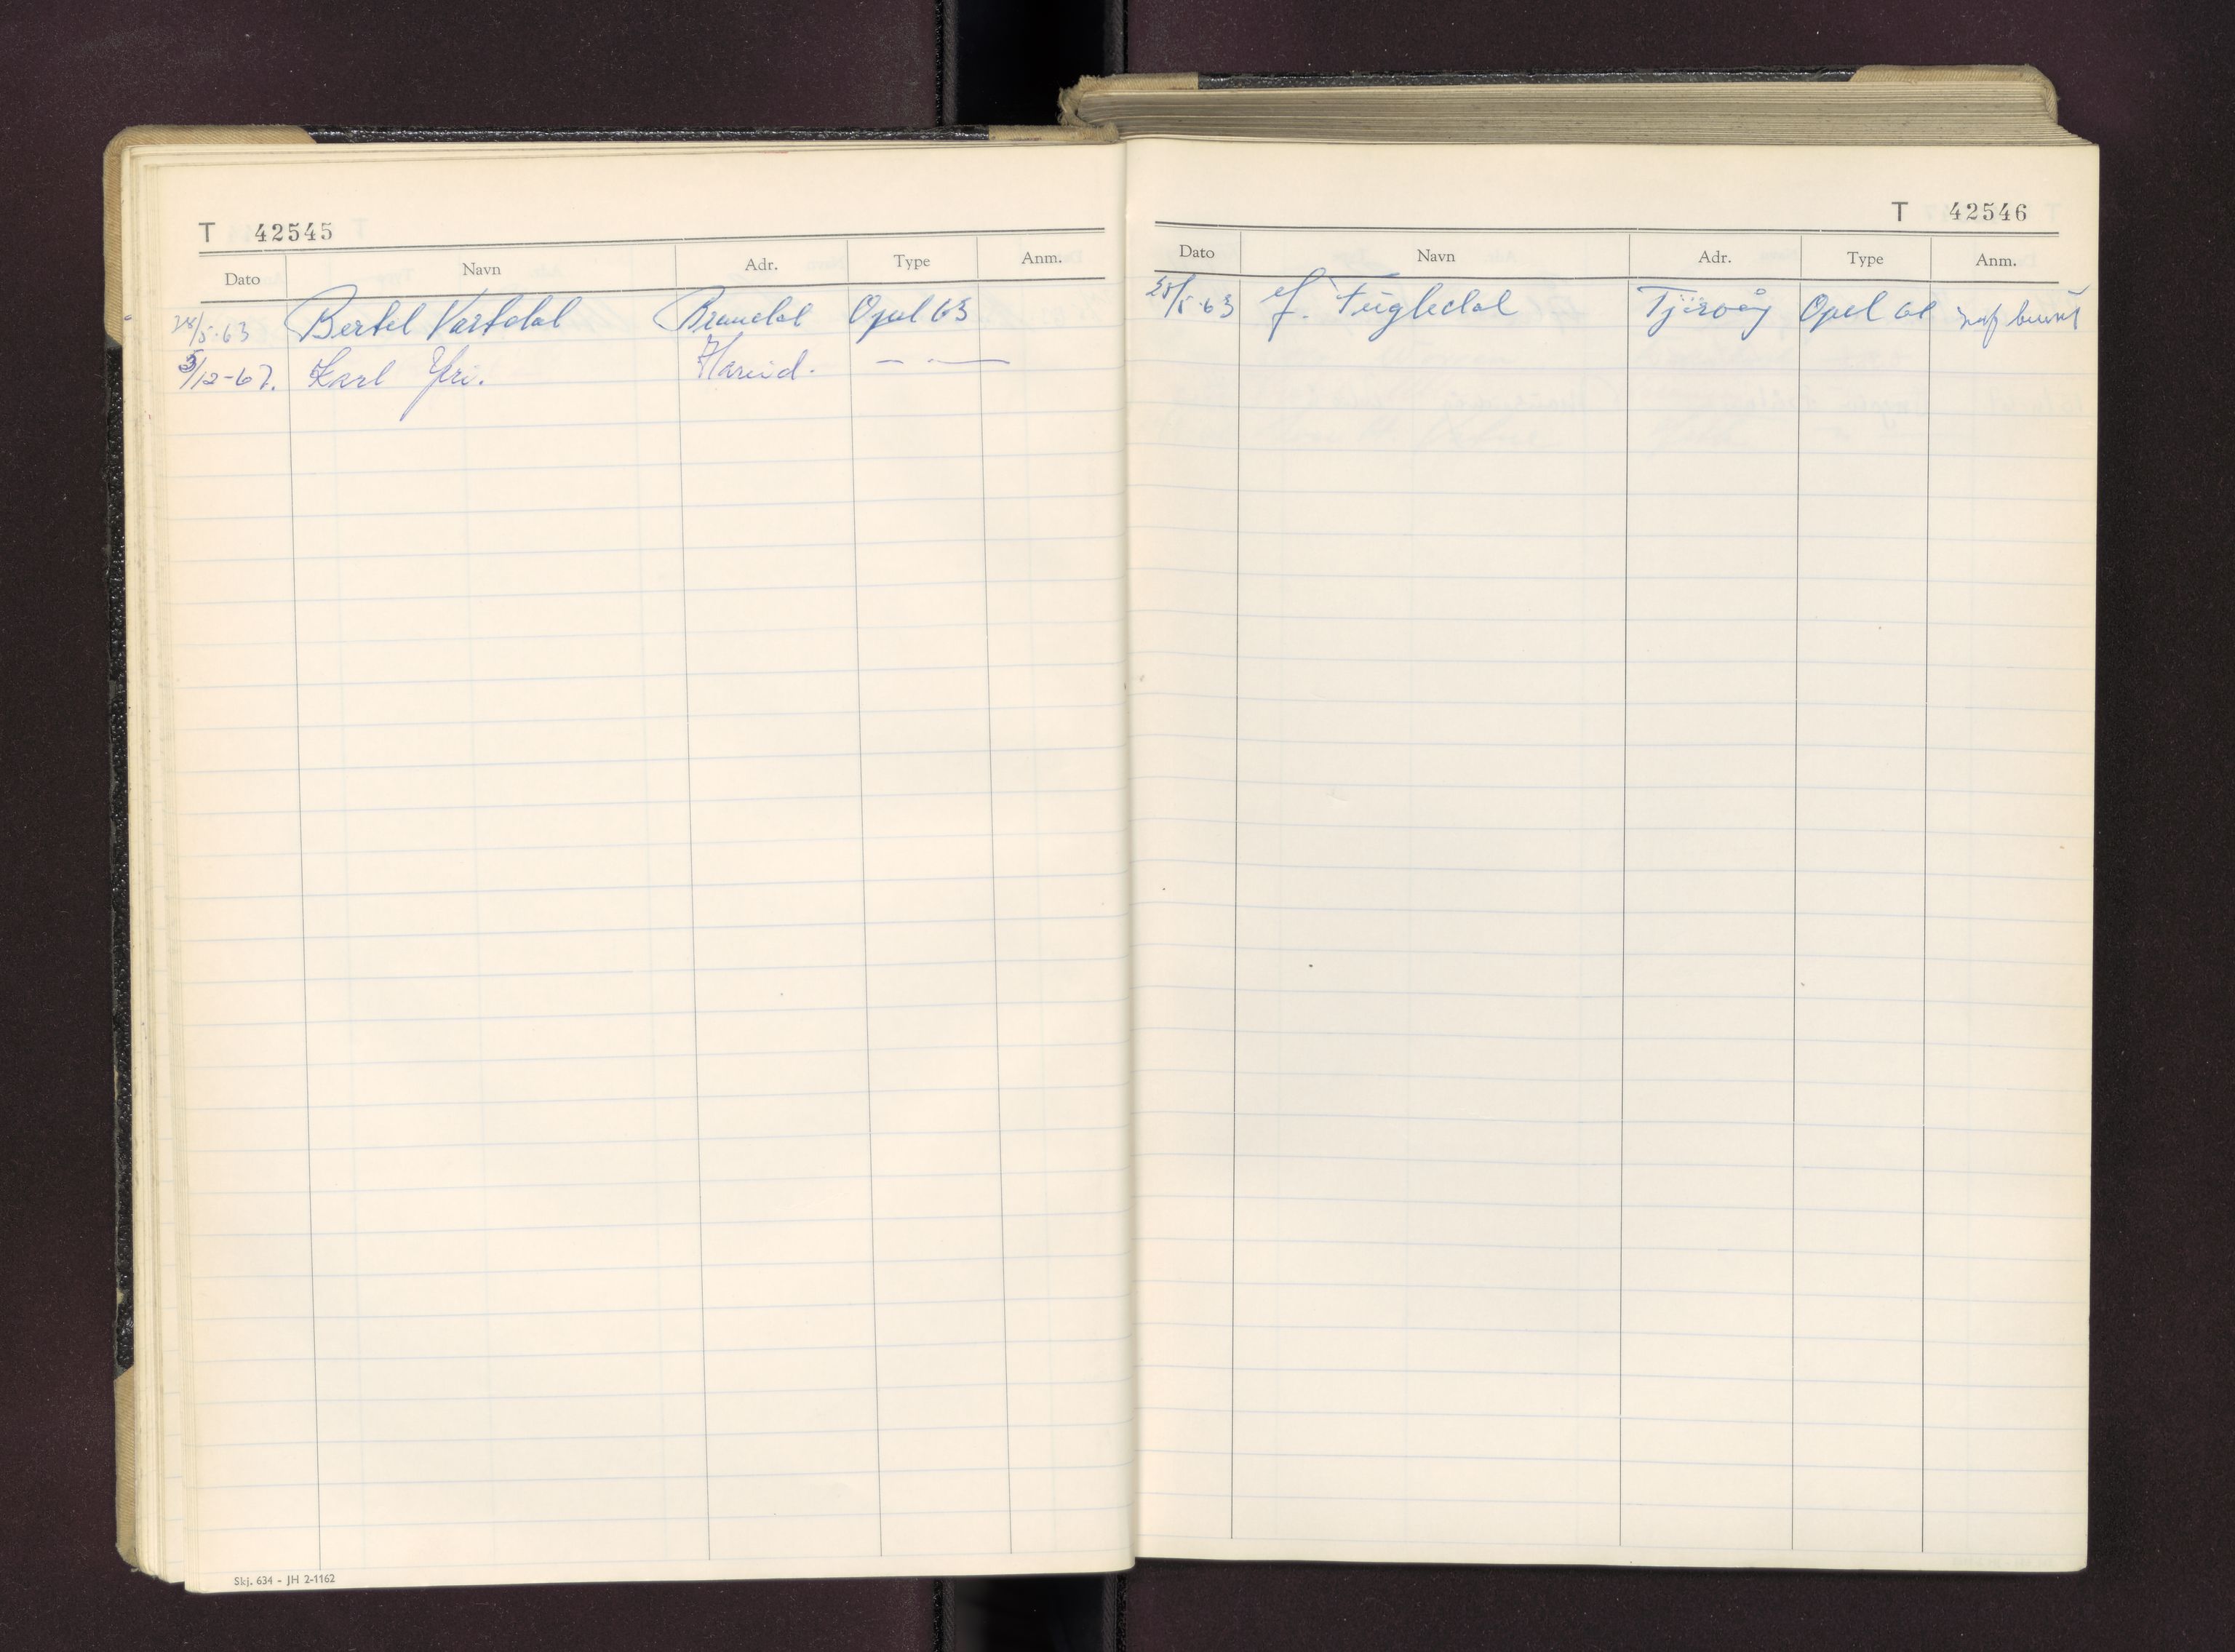 T 42545
Dato Navn Adr. Type Anm.
28/5-63 Bertel Vartdal Brandal Opel 63
5/12-67. Karl Yri. Hareid. — " —
Skj. 634 - JH 2-1162
T 42546
Dato Navn Adr. Type Anm.
28/5-63 J. Fugledal Tjørvåg Opel 61